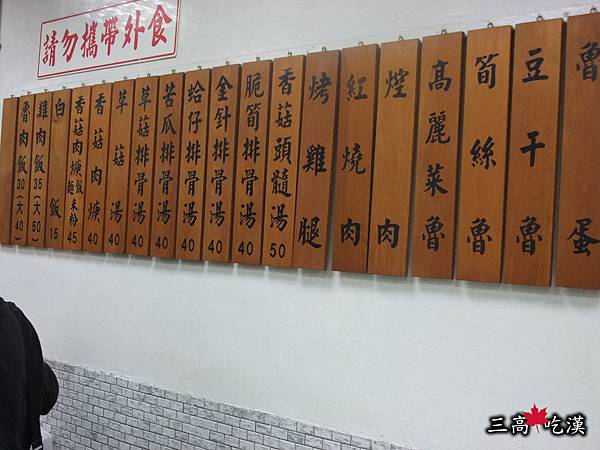 請勿攜帶外食
魯蛋
豆干魯
筍絲魯
高麗菜魯
焢肉
紅燒肉
烤雞腿
香菇頭髓湯50
脆筍排骨湯40
金針排骨湯40
蛤仔排骨湯40
苦瓜排骨湯40
草菇排骨湯40
草菇湯40
香菇肉焿40
香菇肉焿飯麵米粉45
白飯15
雞肉飯35(大50)
魯肉飯30(大40)
三高吃漢